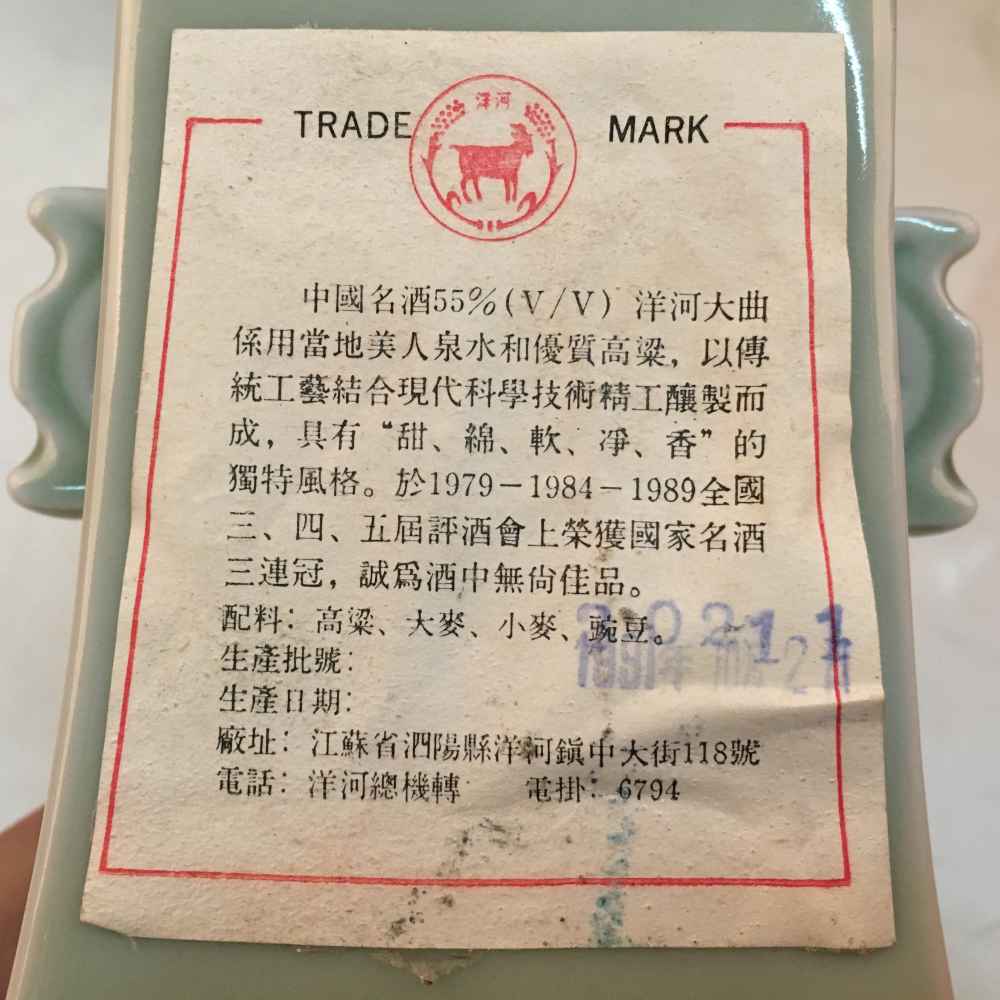 TRADE MARK
洋河
中國名酒55%(V/V) 洋河大曲
係用當地美人泉水和優質高粱，以傳
統工藝結合現代科學技術精工釀製而
成，具有“甜、綿、軟、淨、香”的
獨特風格。於1979－1984－1989全國
三、四、五屆評酒會上榮獲國家名酒
三連冠，誠爲酒中無尙佳品。
配料：高粱、大麥、小麥、豌豆。
生產批號：
生產日期：
廠址：江蘇省泗陽縣洋河鎭中大街118號
電話：洋河總機轉 電掛：6794